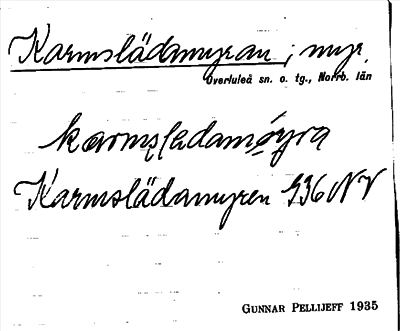 Karmslädamyran ; myr.
Överluleå sn. o. tg., Norrb. län
karmsledamøyra
Karmslädamyren 936 NV
GUNNAR PELLIJEFF 1935